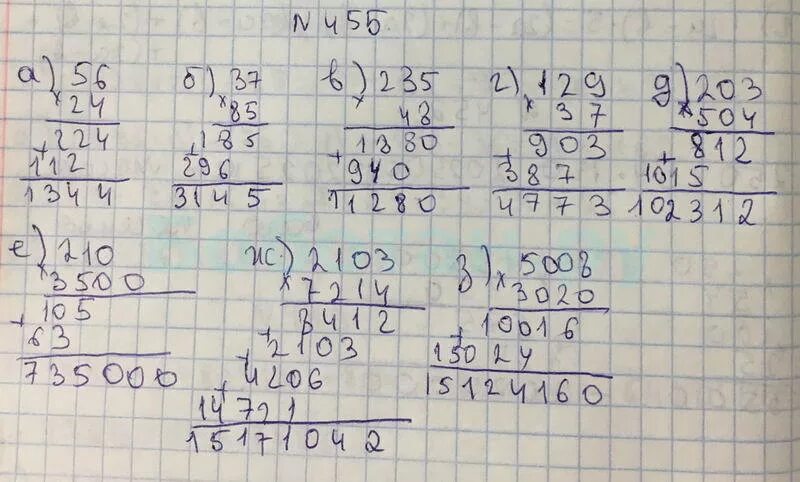 N 455
а) 56
× 24
+ 224
112
1344
б) 37
× 85
+ 185
296
3145
в) 235
× 48
1880
+ 940
11280
г) 129
× 37
+ 903
387
4773
д) 203
× 504
+ 812
1015
102312
е) 210
× 3500
105
+ 63
735000
ж) 2103
× 7214
8412
+ 2103
+ 4206
+ 14721
15171042
з) 5008
× 3020
+ 10016
15024
15124160